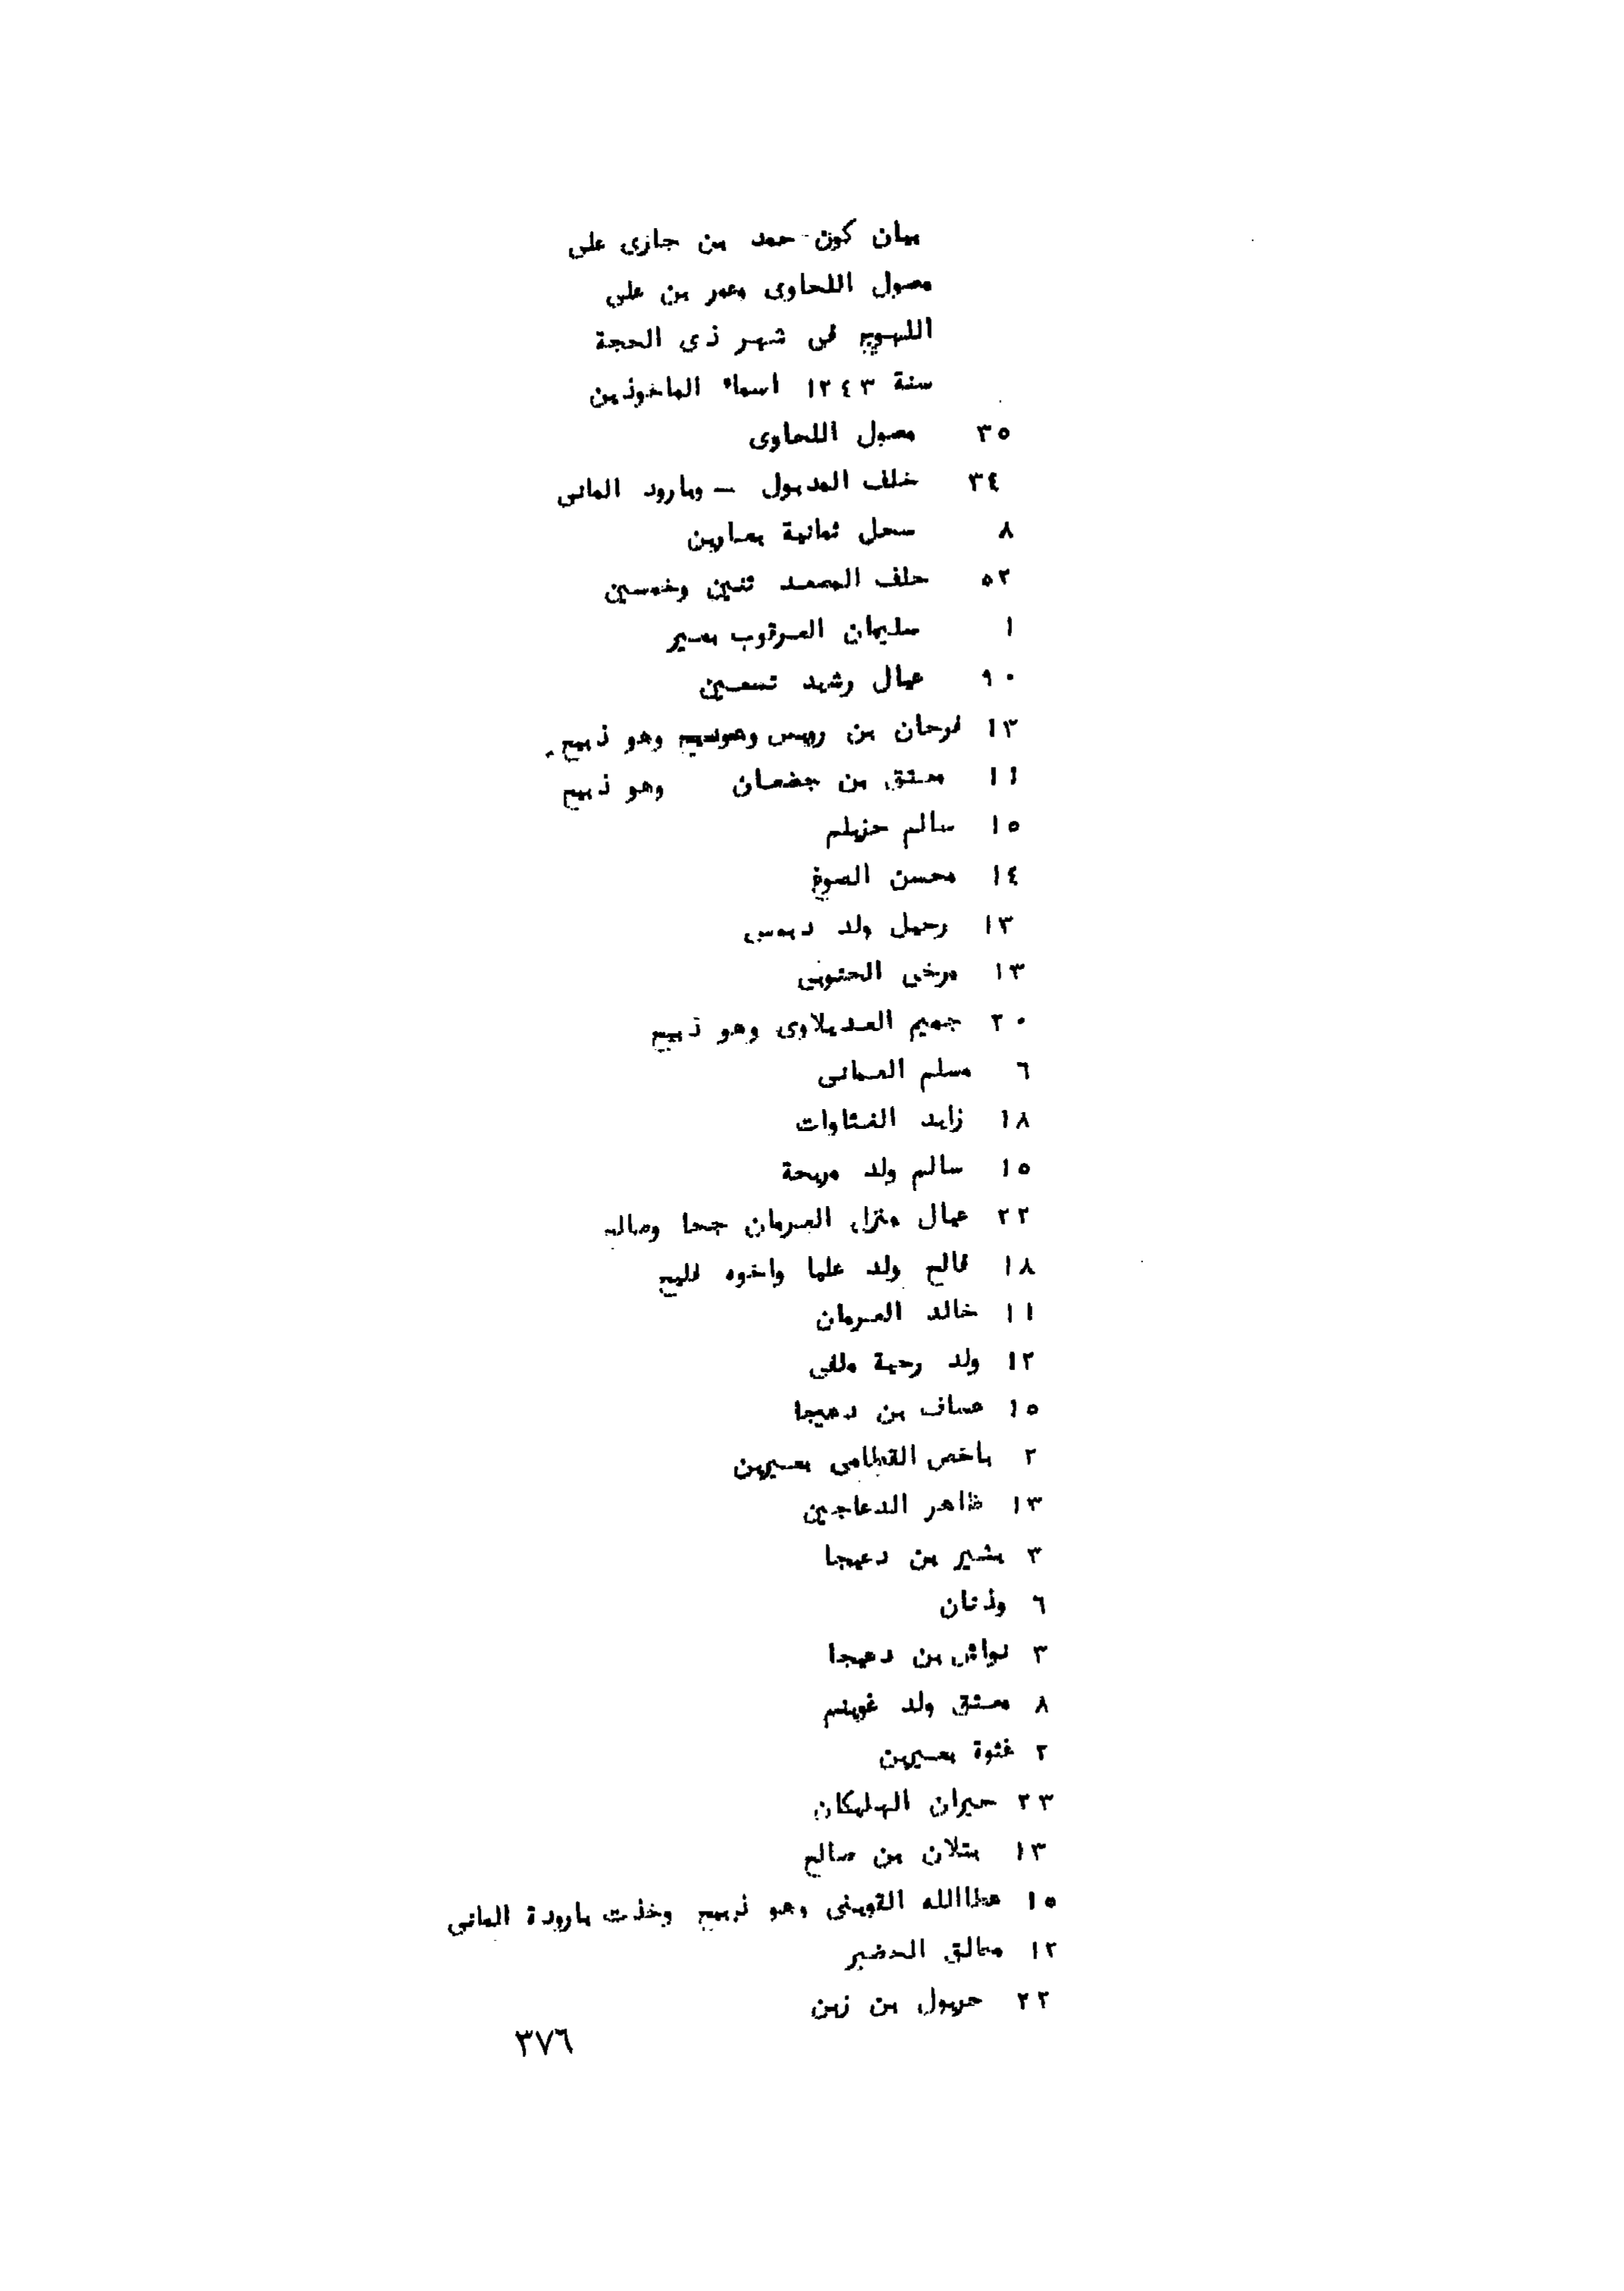 بيان كون حمد بن جازى على
معبول اللحاوى وعمر بن على
اللهويج فى شهر ذى الحجة
سنة ١٢٤٣ اسماء الماخوذين
٣٥ معبول اللحاوى
٣٤ خلف المدبول – وبارود المانى
٨ سحل ثمانية بعارين
٥٢ خلف المصعد ثنين وخمسين
١ سليمان العرقوب بعير
٩٠ عيال رشيد تسعين
١٣ فرحان بن رويس وهو ذبيح
١١ معتق بن جضعان وهو ذبيح
١٥ سالم حزيلم
١٤ محسن الصوغ
١٣ رحيل ولد دبوس
١٣ مرخى الحنوبى
٢٠ جهيم العديلاوى وهو ذبيح
٦ مسلم العمانى
١٨ زايد الفشاوات
١٥ سالم ولد مريحة
٢٢ عيال منزل العرمان جحا وصالح
١٨ فالح ولد عليا واخوه فليح
١١ خالد العرمان
١٢ ولد رحية ملفى
١٥ عساف بن دعيجا
٢ باخص القطامى بعيرين
١٣ ظاهر الدعاجين
٣ بشير بن دعيجا
٦ وذنان
٣ نواش بن دعيجا
٨ معتق ولد غوينم
٢ غثوة بعيرين
٢٣ حيران الهليكان
١٣ بتلان بن صالح
١٥ عطاالله القوينى وهو ذبيح وخذت بارودة المانى
١٢ معالق الحضير
٢٢ حربول بن زبن
٣٧٦